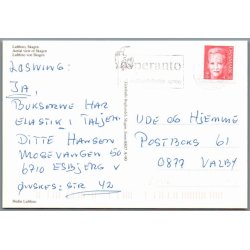 Luftfoto, Skagen
Aerial view of Skagen
Luftfoto von Skagen
esperanto
LØSNING:
JA,
BUKSERNE HAR
ELASTIK I TALJEN.
DITTE HANSEN
MOSEVANGEN 50
6710 ESBJERG V
ØNSKES: STR 42
UDE OG HJEMME
POSTBOKS 61
0877 VALBY